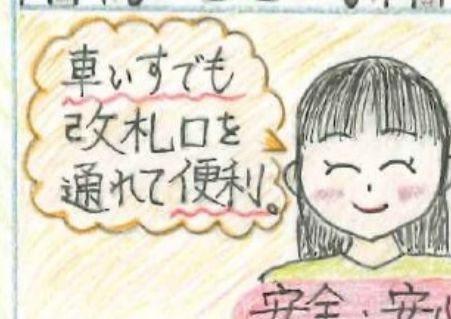 車いすでも
改札口を
通れて便利。
安全・安心